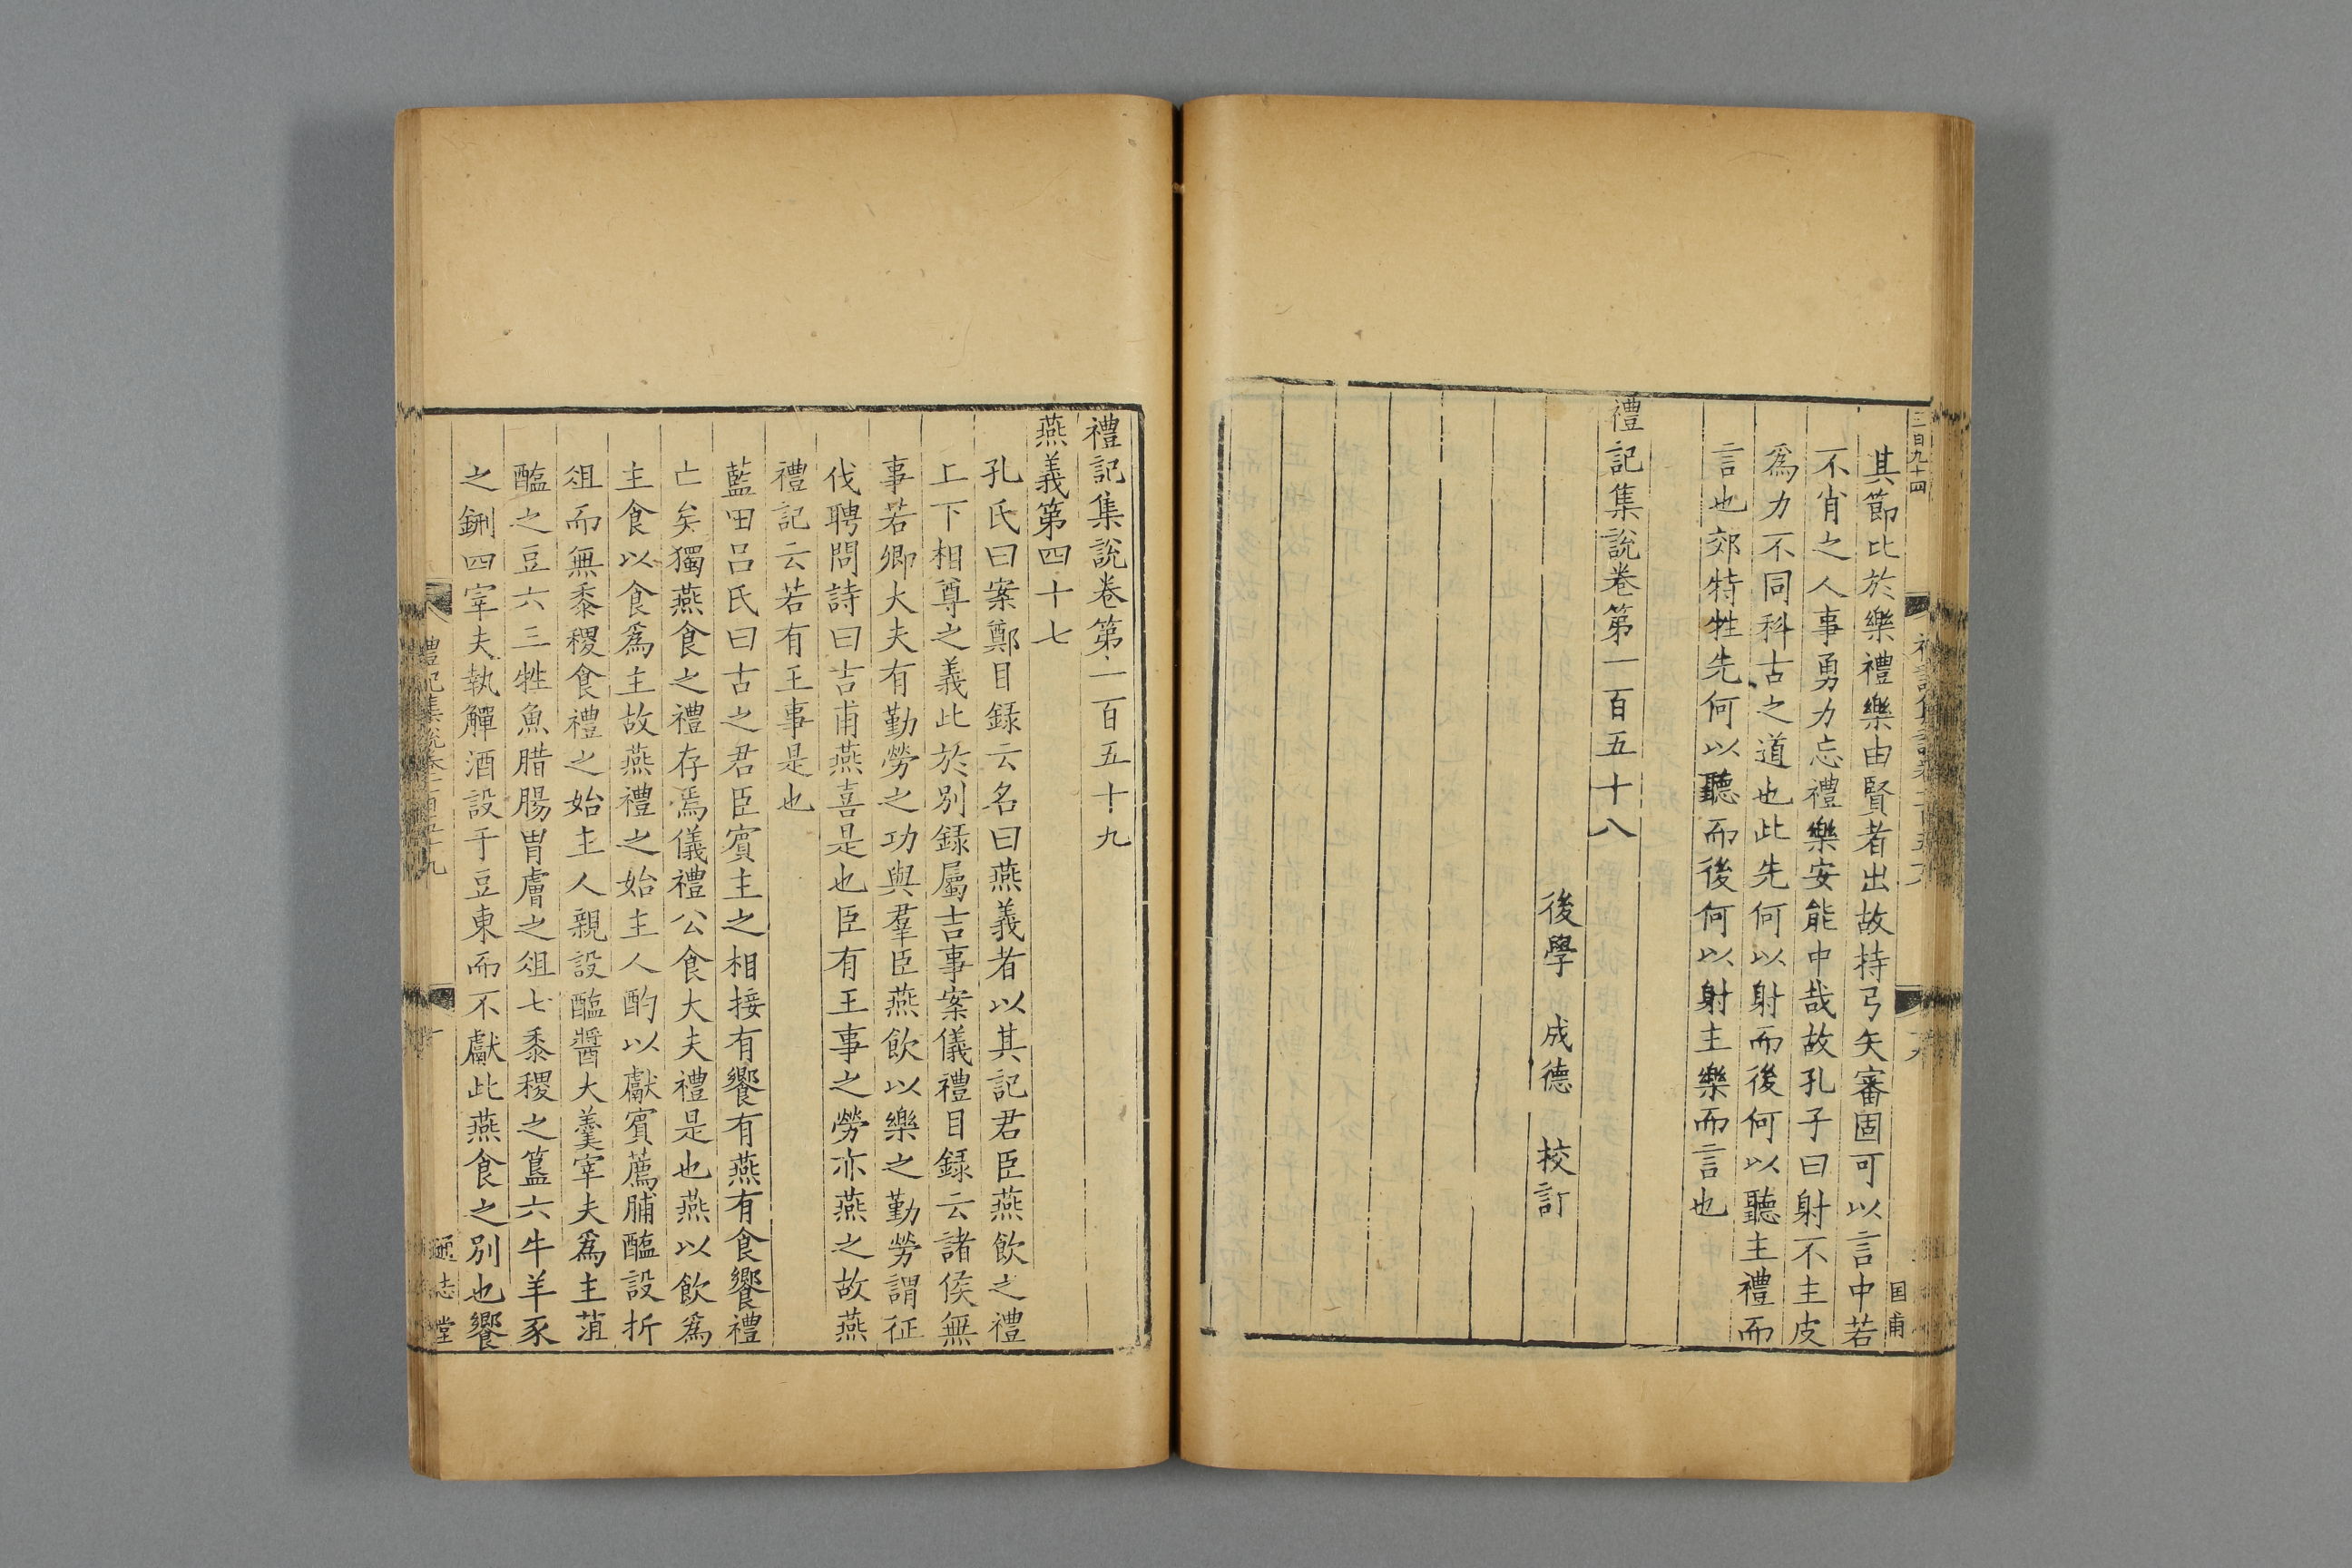 三百九十四
国甫
其節比於樂禮樂由賢者出故持弓矢審固可以言中若
不肖之人事勇力忘禮樂安能中哉故孔子曰射不主皮
爲力不同科古之道也此先何以射而後何以聽主禮而
言也郊特牲先何以聽而後何以射主樂而言也
禮記集說卷第一百五十八
後學 成德 校訂
禮記集說卷第一百五十九
燕義第四十七
孔氏曰案鄭目錄云名曰燕義者以其記君臣燕飲之禮
上下相尊之義此於別錄屬吉事案儀禮目錄云諸侯無
事若卿大夫有勤勞之功與羣臣燕飲以樂之勤勞謂征
伐聘問詩曰吉甫燕喜是也臣有王事之勞亦燕之故燕
禮記云若有王事是也
藍田呂氏曰古之君臣賓主之相接有饗有燕有食饗禮
亡矣獨燕食之禮存焉儀禮公食大夫禮是也燕以飲爲
主食以食爲主故燕禮之始主人酌以獻賓薦脯醢設折
俎而無黍稷食禮之始主人親設醢醬大羹宰夫爲主菹
醢之豆六三牲魚腊腸胃膚之俎七黍稷之簋六牛羊豕
之鉶四宰夫執觶酒設于豆東而不獻此燕食之別也饗
禮記集說卷一百五十九
通志堂